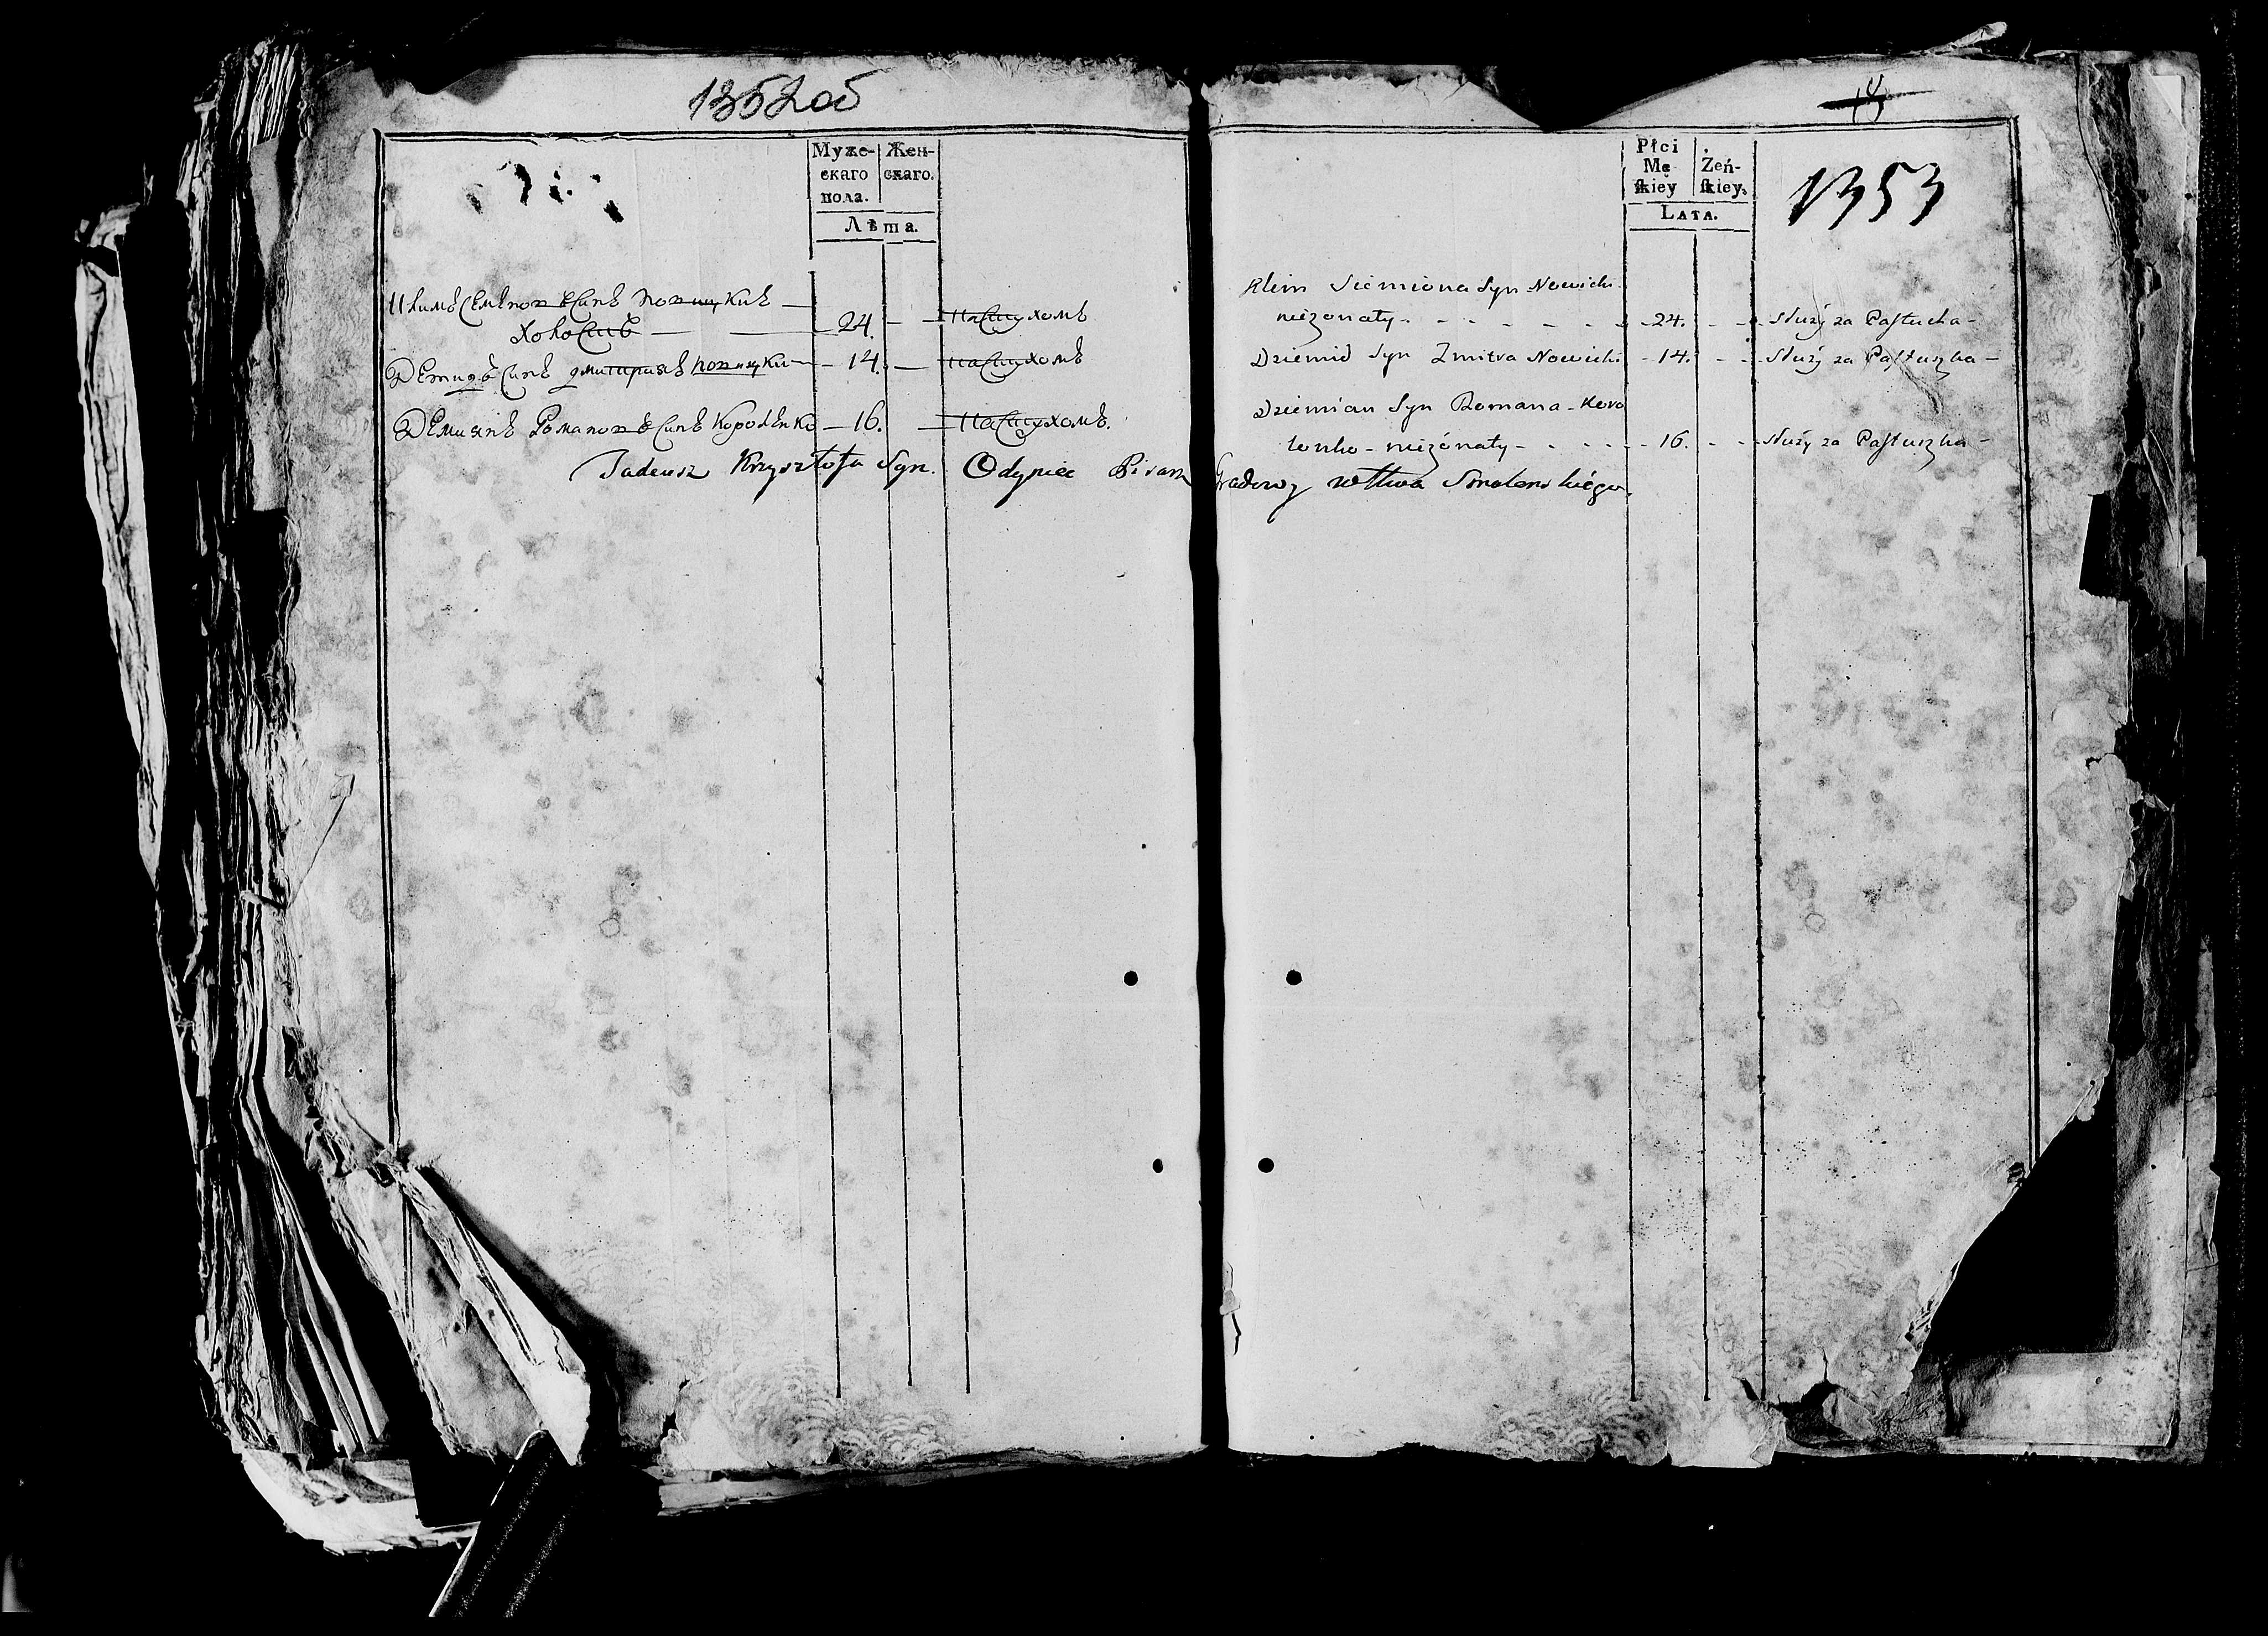 1352об
Муже-
скаго
пола.
Жен-
скаго.
Лѣта.
Климъ Семеновъ Синъ Новицкий —
холостъ — — 24. — — Пастухомъ
Демидъ Синъ Дмитриевъ Новицки — 14. — Пастухомъ
Демиянъ Романовъ Синъ Короленко — 16. — Пастухомъ.
Tadeusz Krzysztofa Syn. Odyniec Pisarz Grodowy wttwa Smolenskiego.
1353
Płci
Mę-
skiey
Żeń-
skiey.
Lata.
Klim Siemiona Syn Nowicki
nieżonaty - 24. - - służy za Pastucha -
Dziemid Syn Zmitra Nowicki - 14. - - służy za Pastuszka -
Dziemian Syn Romana - Koro
lenko - nieżonaty - 16. - - służy za Pastuszka -